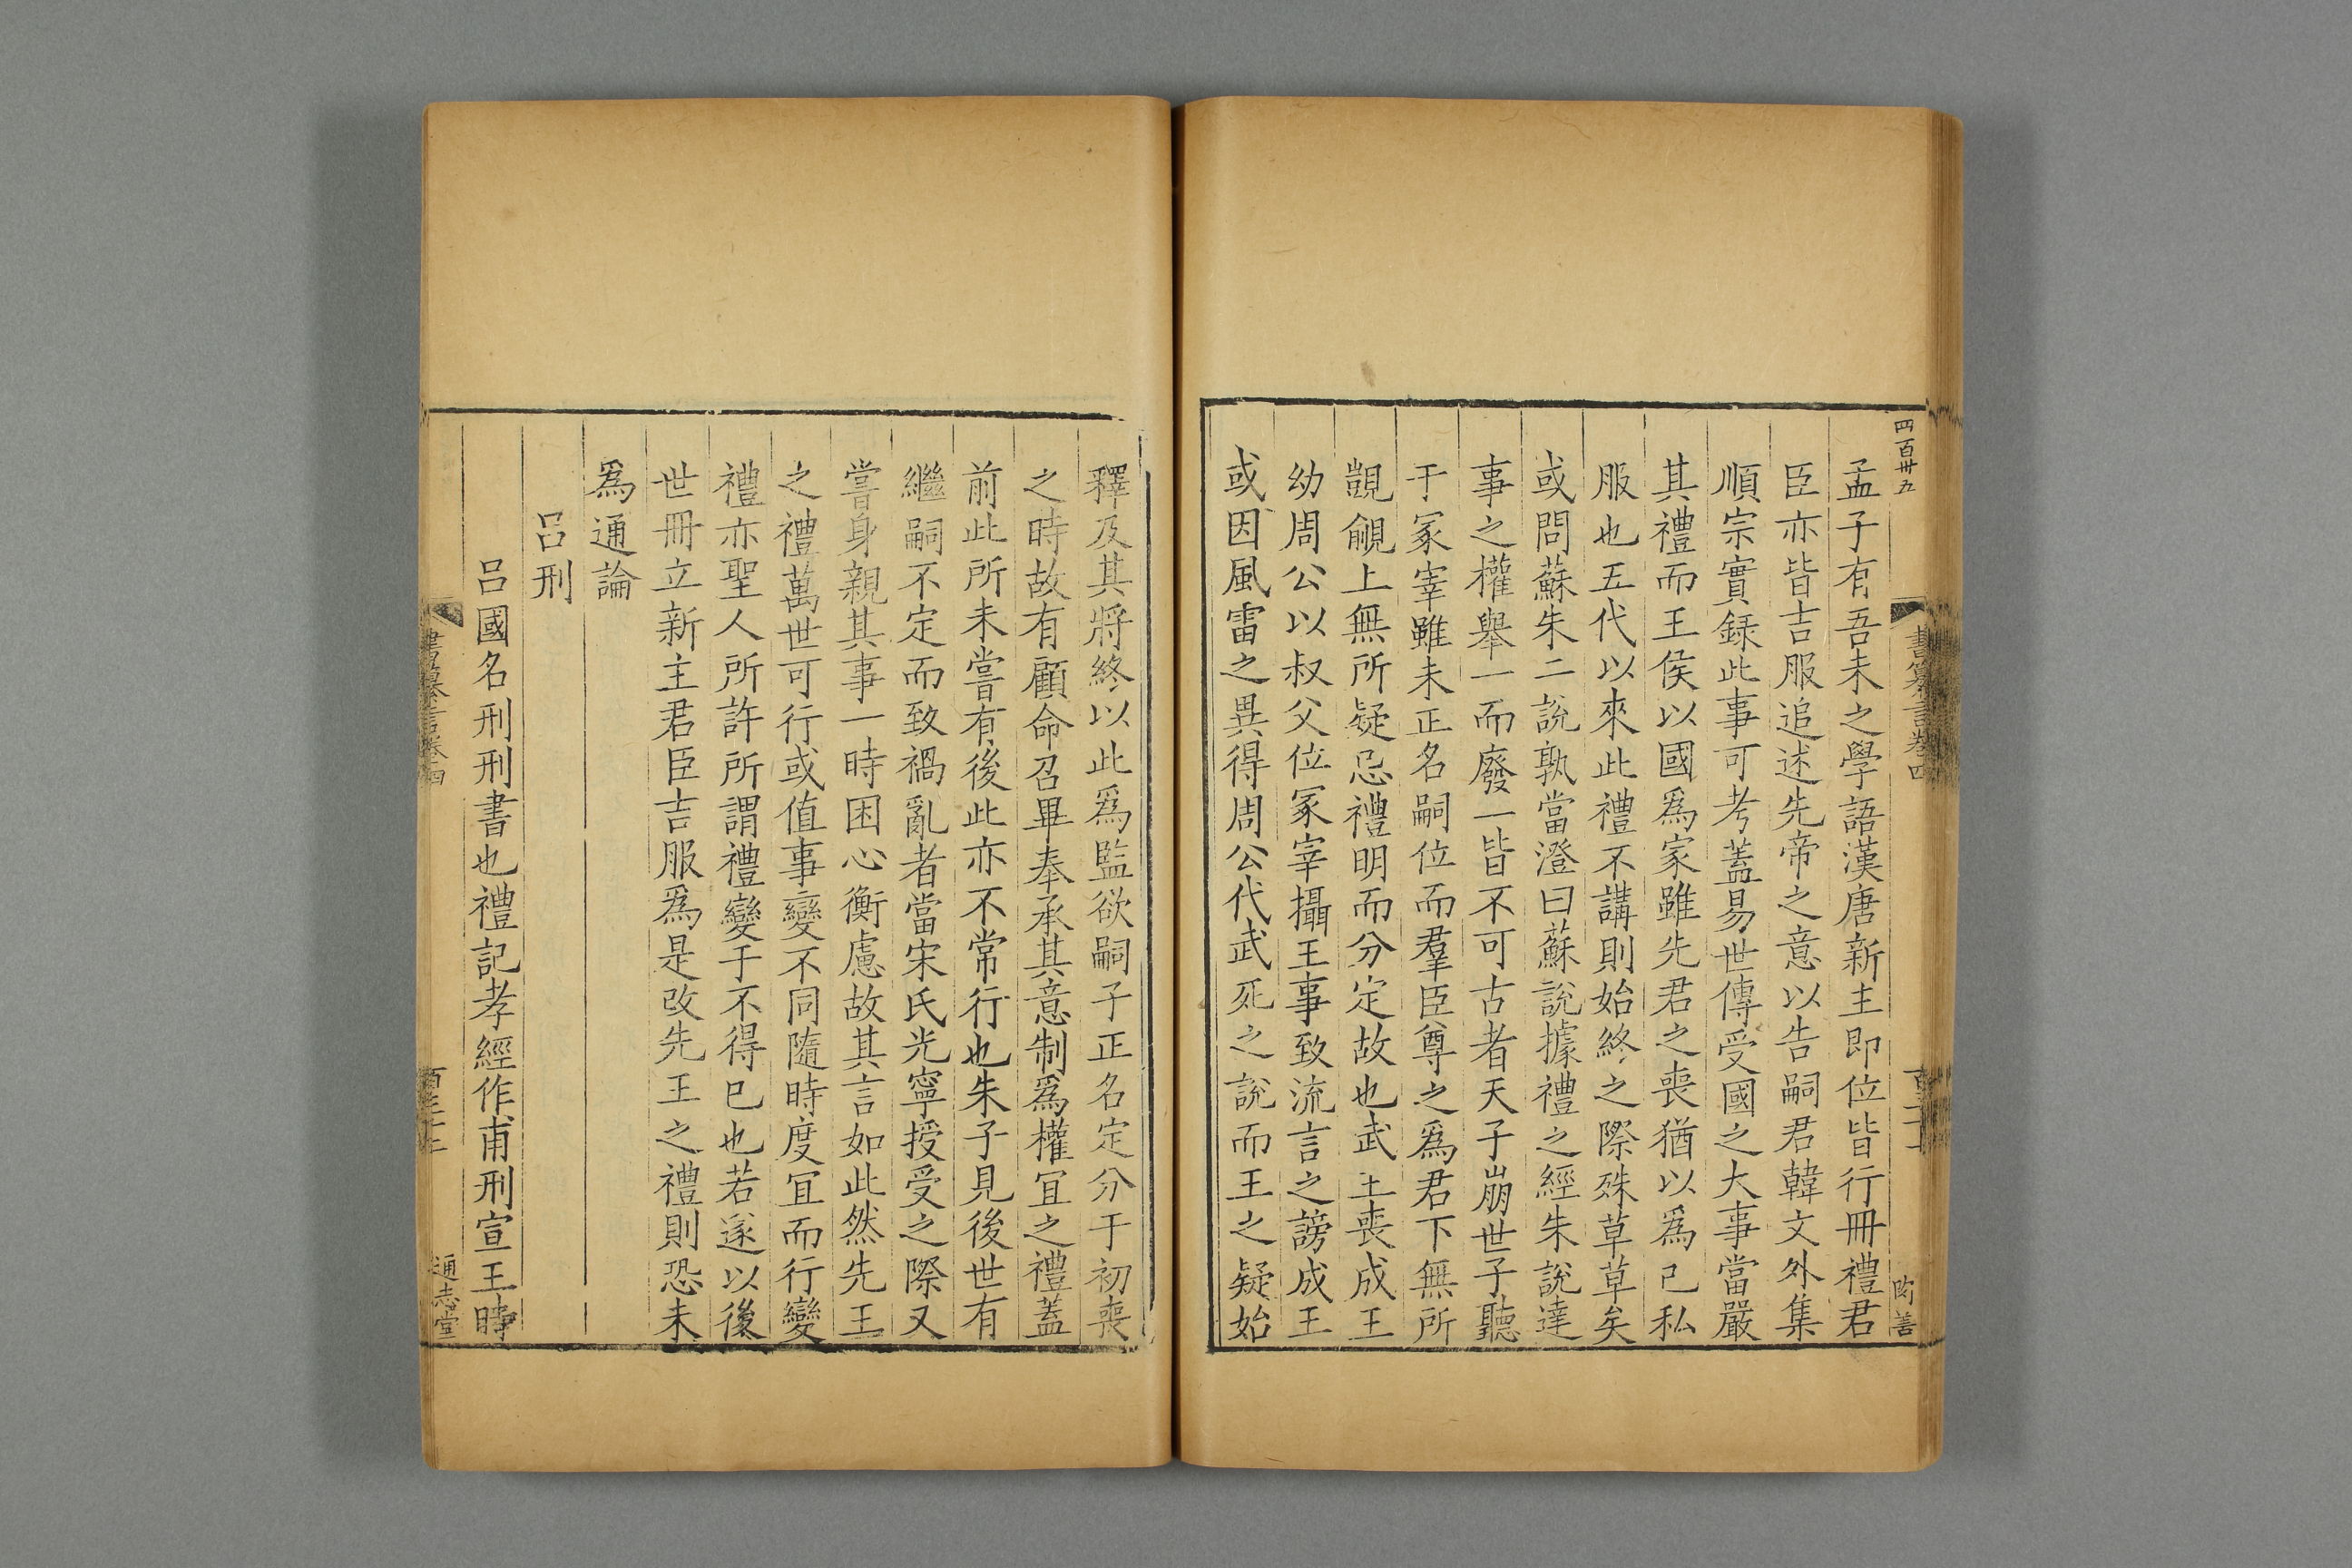 四百卅五
書纂言卷四
孟子有吾未之學語漢唐新主即位皆行冊禮君
臣亦皆吉服追述先帝之意以告嗣君韓文外集
順宗實録此事可考蓋易世傳受國之大事當嚴
其禮而王侯以國爲家雖先君之喪猶以爲己私
服也五代以來此禮不講則始終之際殊草草矣
或問蘇朱二說孰當澄曰蘇說據禮之經朱說達
事之權舉一而廢一皆不可古者天子崩世子聽
于冢宰雖未正名嗣位而羣臣尊之爲君下無所
覬覦上無所疑忌禮明而分定故也武王喪成王
幼周公以叔父位冢宰攝王事致流言之謗成王
或因風雷之異得周公代武死之說而王之疑始
釋及其將終以此爲監欲嗣子正名定分于初喪
之時故有顧命召畢奉承其意制爲權宜之禮蓋
前此所未嘗有後此亦不常行也朱子見後世有
繼嗣不定而致禍亂者當宋氏光寧授受之際又
嘗身親其事一時困心衡慮故其言如此然先王
之禮萬世可行或值事變不同隨時度宜而行變
禮亦聖人所許所謂禮變于不得已也若遂以後
世冊立新主君臣吉服爲是改先王之禮則恐未
爲通論
呂刑
呂國名刑刑書也禮記孝經作甫刑宣王時
書纂言卷四
通志堂